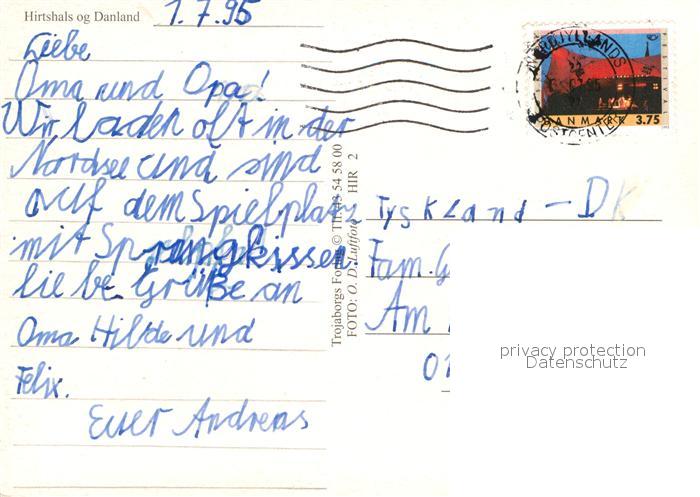 Hirtshals og Danland
1.7.95
Liebe
Oma und Opa!
Wir baden oft in der
Nordsee und sind
auf dem Spielplatz
mit Sprungkissen.
Liebe Grüße an
Oma Hilde und
Felix.
Euer Andreas
Trojaborgs Forlag © Tlf.
54 58 00
FOTO: O. D. Luftfoto HIR 2
NORDJYLLANDS
POSTCENTER
FESTIVAL
DANMARK 3.75
Tyskland - DK
Fam. G
Am
01
privacy protection
Datenschutz